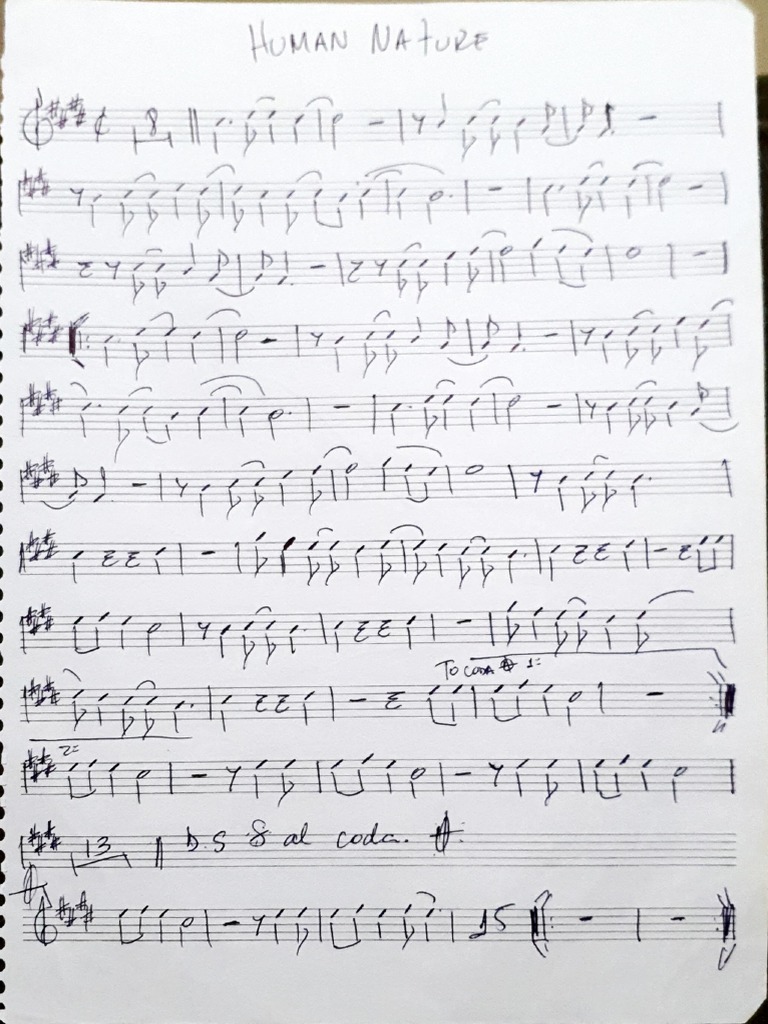 HUMAN NATURE
8
TO CODA 1=
2=
13 D.S al coda.
15